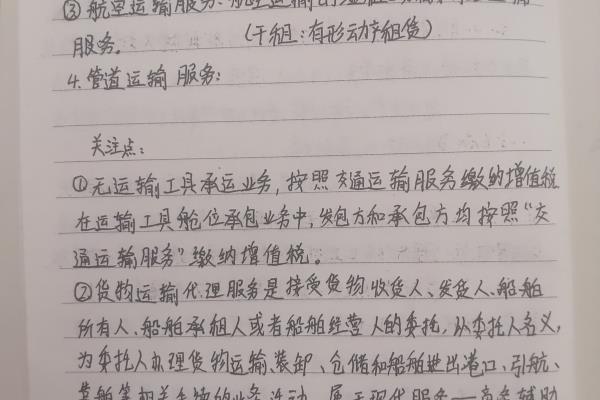 ③航空运输服务:航空运输的湿租
服务。 (干租:有形动产租赁)
4.管道运输服务:
关注点:
①无运输工具承运业务,按照交通运输服务缴纳增值税
在运输工具舱位承包业务中,发包方和承包方均按照“交
通运输服务”缴纳增值税。
②货物运输代理服务是接受货物收货人、发货人、船舶
所有人、船舶承租人或者船舶经营人的委托,以委托人名义,
为委托人办理货物运输、装卸、仓储和船舶进出港口、引航、
靠舶等相关手续的业务活动,属于现代服务——商务辅助